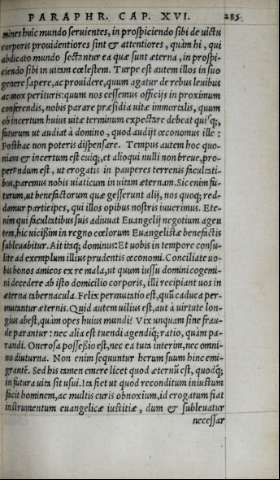 PARAPHR. CAP. XVI. 285
mines huic mundo seruientes, in prospiciendo sibi de uictu
corporis prouidentiores sint & attentiores, quàm hi, qui
abdicato mundo sectantur ea quæ sunt æterna, in prospi-
ciendo sibi in uitam cœlestem. Turpe est autem illos in suo
genere sapere, ac prouidere, quum agatur de rebus leuibus
ac mox perituris: quum nos cessemus officijs in proximum
conferendis, nobis parare præsidia uitæ immortalis, quum
ob incertum huius uitæ terminum expectare debeat quisq;,
futurum ut audiat à domino, quod audijt œconomus ille:
Posthac non poteris dispensare. Tempus autem hoc quo-
niam & incertum est cuiq;, et alioqui nulli non breue, pro-
perandum est, ut erogatis in pauperes terrenis facultati-
bus, paremus nobis uiaticum in uitam æternam. Sic enim fu-
turum, ut benefactorum quæ gesserunt alij, nos quoq; red-
damur participes, qui illos opibus nostris iuuerimus. Ete-
nim qui facultatibus suis adiuuat Euangelij negotium agen
tem, hic uicissim in regno cœlorum Euangelistæ benefactis
subleuabitur. Ait itaq; dominus: Et uobis in tempore consu-
lite ad exemplum illius prudentis œconomi. Conciliate uo-
bis bonos amicos ex re mala, ut quum iussu domini cogemi-
ni decedere ab isto domicilio corporis, illi recipiant uos in
æterna tabernacula. Felix permutatio est, quũ caduca per-
mutantur æternis. Quid autem uilius est, aut à uirtute lon-
gius abest, quàm opes huius mundi? Vix unquam sine frau-
de parantur: nec alia est tuendi agendiq; ratio, quàm pa-
randi. Onerosa possessio est, nec ea tuta interim, nec omni-
no diuturna. Non enim sequuntur herum suum hinc emi-
grantẽ. Sed his tamen emere licet quod æternũ est, quodq;
in futura uita sit usui. Ita fiet ut quod reconditum iniustum
facit hominem, ac multis curis obnoxium, id erogatum fiat
instrumentum euangelicæ iustitiæ, dum & subleuatur
necessar